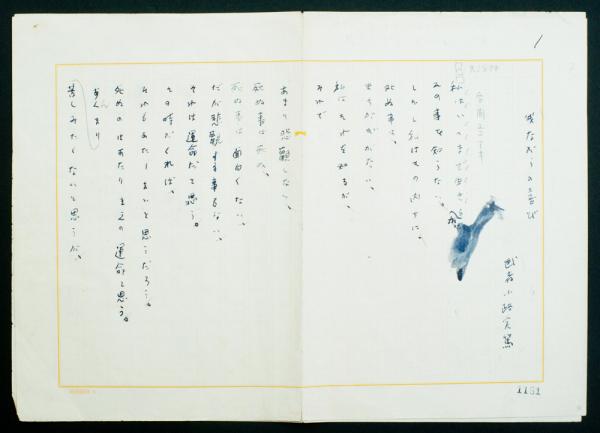 1
武者小路実篤
私はいつまで生きるか
その事を知らない、
しかし私はその内に、
死ぬ事は、
まちがいない、
私はそれを知るが、
それで
あまり悲観しない、
死ぬ事は死ぬ、
死ぬ事は面白くない、
だが悲観する事もない、
それは運命だと思う。
その時がくれば、
それもあたりまえと思うだろう。
死ぬのはあたりまえの運命と思う。
あんまり
苦しみたくないと思うが、
1151